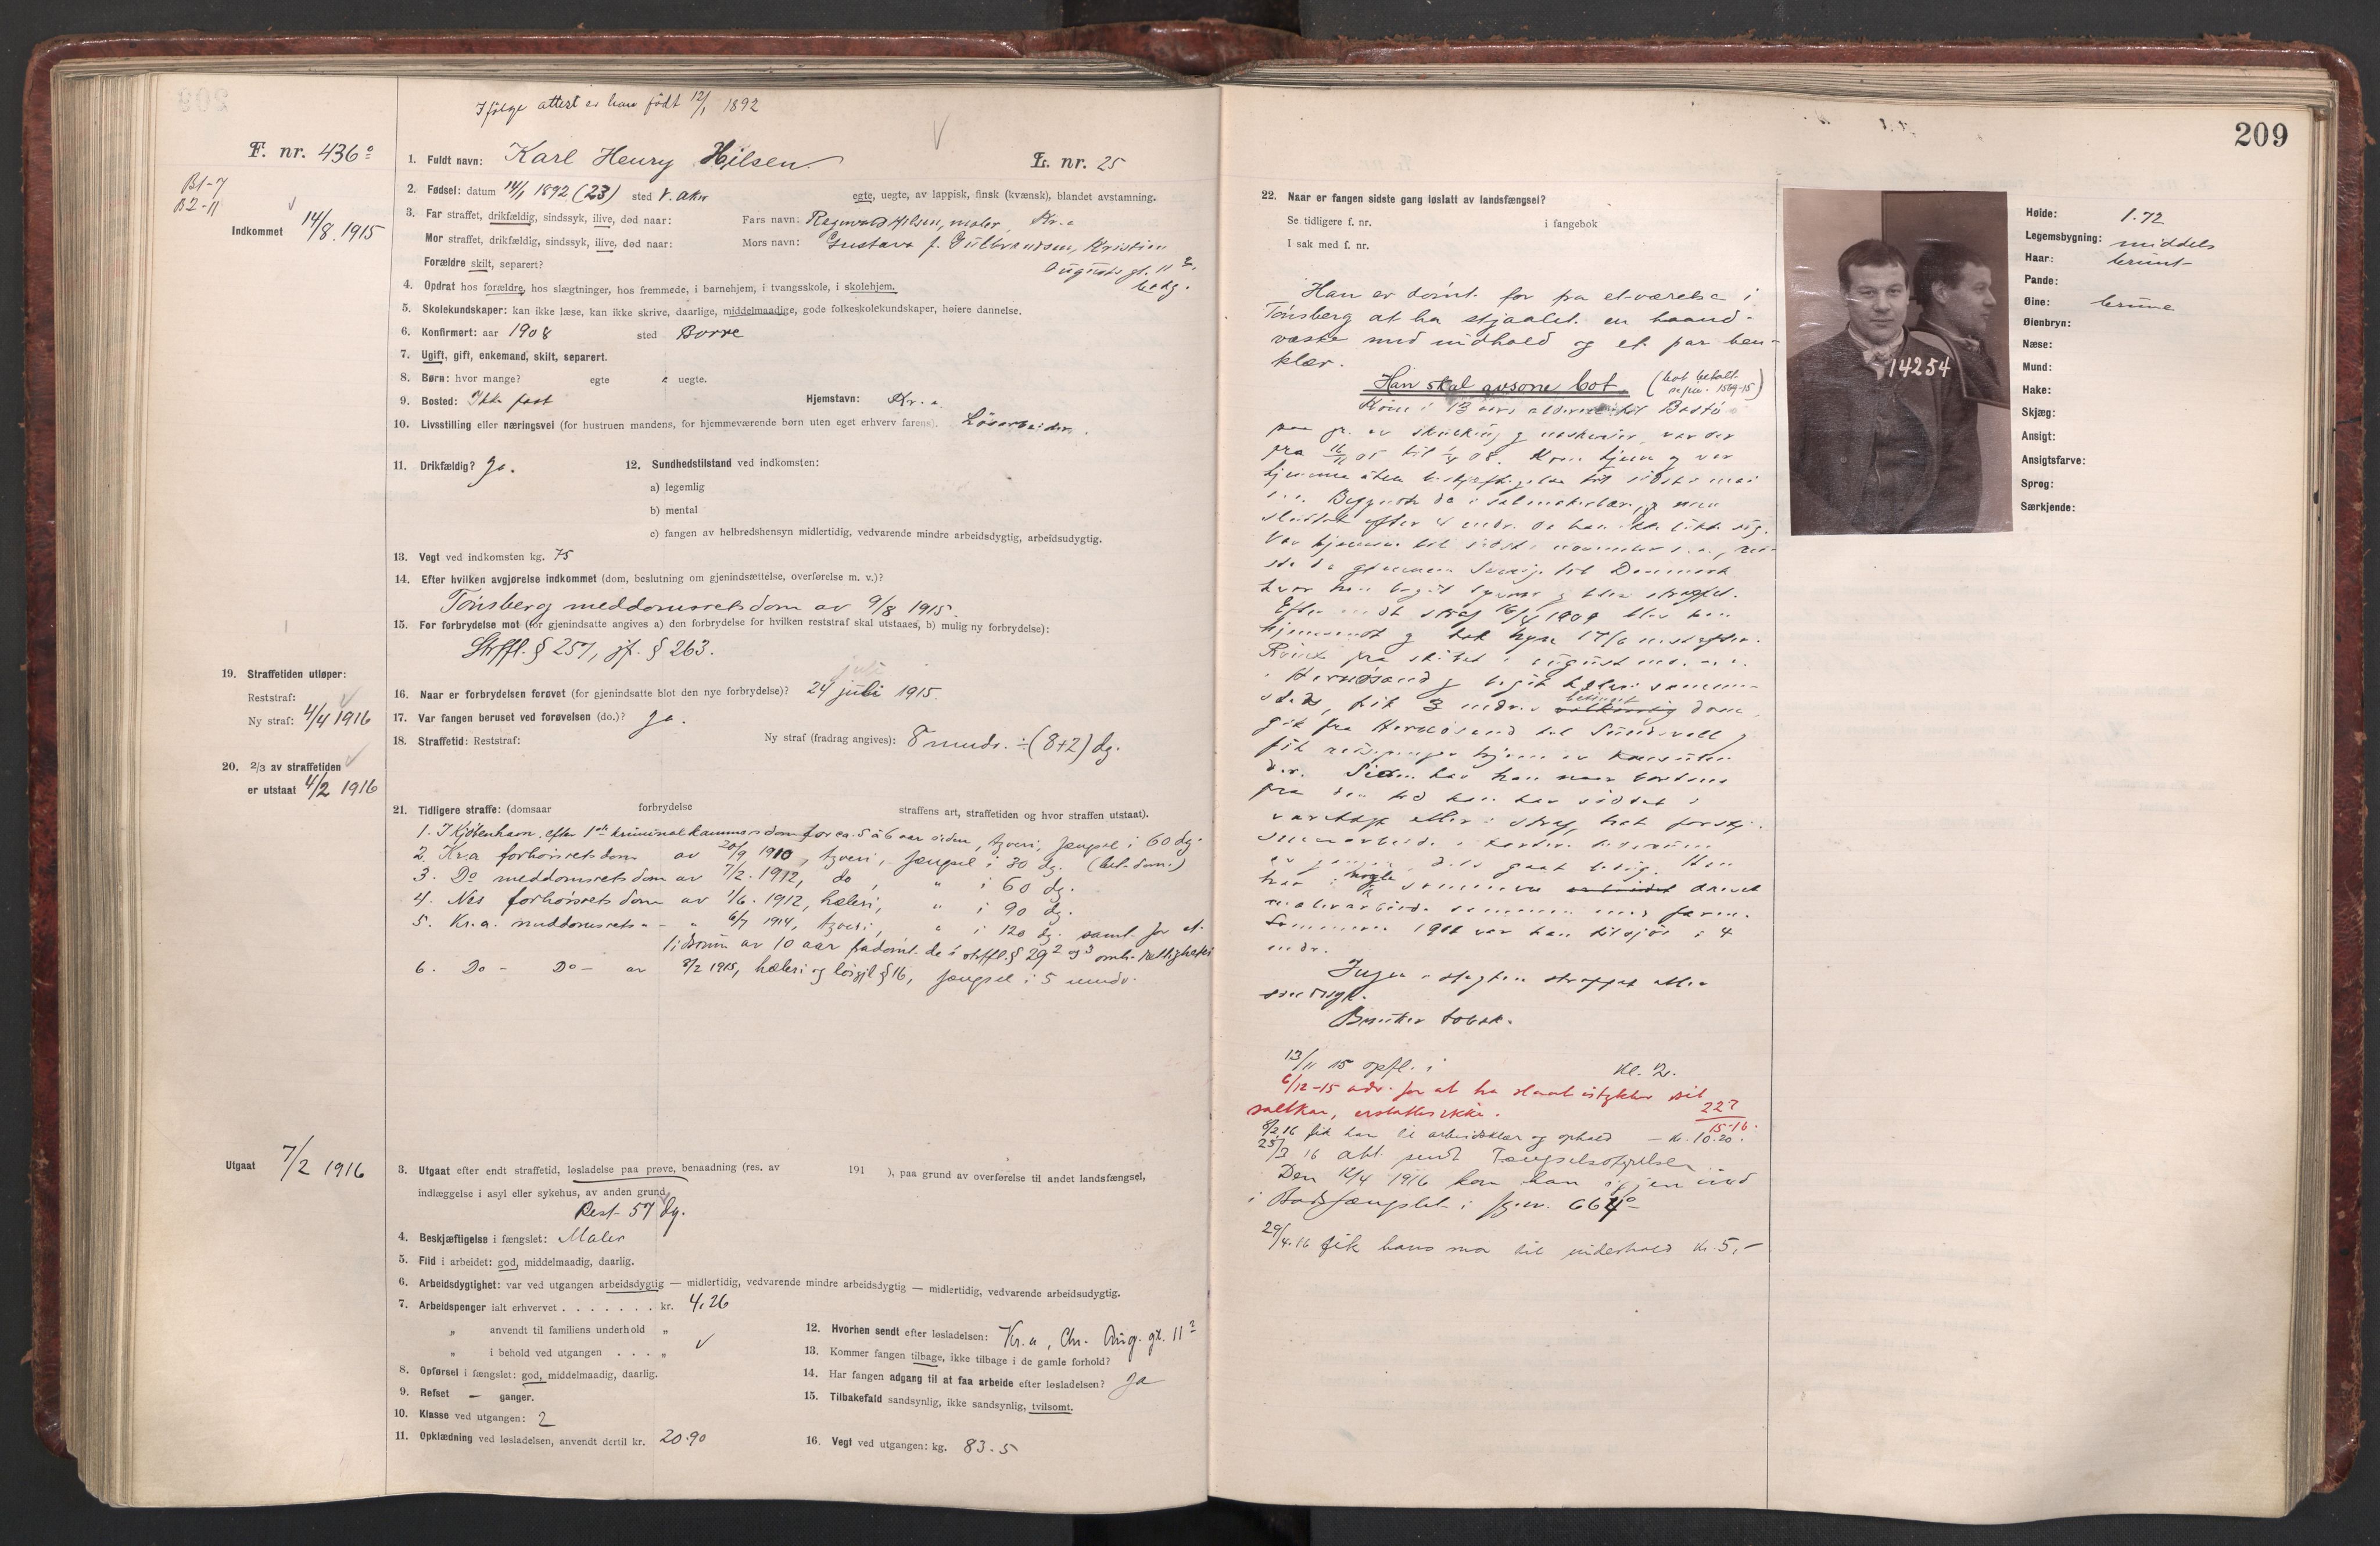 Ifølge attest er han født 12/1 1892
F. nr. 436 o
1. Fuldt navn: Karl Henry Hilsen L. nr. 25
B1-7
B2-11
Indkommet 14/8 1915
2. Fødsel: datum 14/1 1892 (23) sted V. Aker egte, uegte, av lappisk, finsk (kvænsk), blandet avstamning.
3. Far straffet, drikfældig, sindssyk, ilive, død naar: Fars navn: Hilsen, maler, Kr.a
Mor straffet, drikfældig, sindssyk, ilive, død naar: Mors navn: Gustava f. Gulbrandsen, Kristian
Forældre skilt, separert? Augusts gt. 11
4. Opdrat hos forældre, hos slægtninger, hos fremmede, i barnehjem, i tvangsskole, i skolehjem.
5. Skolekundskaper: kan ikke læse, kan ikke skrive, daarlige, middelmaadige, gode folkeskolekundskaper, høiere dannelse.
6. Konfirmert: aar 1908 sted Borre
7. Ugift, gift, enkemand, skilt, separert.
8. Børn: hvor mange? egte uegte.
9. Bosted: Ikke fast Hjemstavn: Kr.a
10. Livsstilling eller næringsvei (for hustruen mandens, for hjemmeværende børn uten eget erhverv farens). Løsarbeider.
11. Drikfældig? Ja. 12. Sundhedstilstand ved indkomsten:
a) legemlig
b) mental
c) fangen av helbredshensyn midlertidig, vedvarende mindre arbeidsdygtig, arbeidsudygtig.
13. Vegt ved indkomsten kg. 75
14. Efter hvilken avgjørelse indkommet (dom, beslutning om gjenindsættelse, overførelse m. v.)?
Tønsberg meddomsrets dom av 9/8 1915.
15. For forbrydelse mot (for gjenindsatte angives a) den forbrydelse for hvilken reststraf skal utstaaes, b) mulig ny forbrydelse):
Strffl. § 257, jf. § 263.
19. Straffetiden utløper:
Reststraf:
Ny straf: 4/4 1916
juli
16. Naar er forbrydelsen forøvet (for gjenindsatte blot den nye forbrydelse)? 24 juli 1915.
17. Var fangen beruset ved forøvelsen (do.)? Ja.
18. Straffetid: Reststraf: Ny straf (fradrag angives): 8 mndr. ÷ (8+2) dg.
20. 2/3 av straffetiden
er utstaat 4/2 1916
21. Tidligere straffe: (domsaar forbrydelse straffens art, straffetiden og hvor straffen utstaat).
1. I Kjøbenhavn efter 1ste kriminalkammers dom for ca. 5 à 6 aar siden, tyveri, fængsel i 60 dg.
2. Kr.a forhørsrets dom av 20/9 1910, tyveri, fængsel i 30 dg. (bet. dom.)
3. Do meddomsrets dom av 7/2. 1912, do, " i 60 dg.
4. Nes forhørsrets dom av 1/6. 1912, hæleri, " i 90 dg.
5. Kr.a. meddomsrets " - " 6/7 1914, tyveri, " i 120 dg. samt for et
tidsrum av 10 aar fradømt de i strffl. § 29 2 og 3 omh. rettigheter
6. Do - Do - av 3/2 1915, hæleri og løsgjl. § 16, fængsel i 5 mndr.
Utgaat 7/2 1916
3. Utgaat efter endt straffetid, løsladelse paa prøve, benaadning (res. av 191 ), paa grund av overførelse til andet landsfængsel,
indlæggelse i asyl eller sykehus, av anden grund.
Rest 57 dg.
4. Beskjæftigelse i fængslet: Maler
5. Flid i arbeidet: god, middelmaadig, daarlig.
6. Arbeidsdygtighet: var ved utgangen arbeidsdygtig — midlertidig, vedvarende mindre arbeidsdygtig — midlertidig, vedvarende arbeidsudygtig.
7. Arbeidspenger ialt erhvervet . . . . . . . kr. 4,26
" anvendt til familiens underhold "
" i behold ved utgangen . . . "
8. Opførsel i fængslet: god, middelmaadig, daarlig.
9. Refset — ganger.
10. Klasse ved utgangen: 2
11. Opklædning ved løsladelsen, anvendt dertil kr. 20.90
12. Hvorhen sendt efter løsladelsen: Kr.a, Chr. Aug. gt. 11
13. Kommer fangen tilbage, ikke tilbage i de gamle forhold?
14. Har fangen adgang til at faa arbeide efter løsladelsen? Ja
15. Tilbakefald sandsynlig, ikke sandsynlig, tvilsomt.
16. Vegt ved utgangen: kg. 83.5
209
22. Naar er fangen sidste gang løslatt av landsfængsel?
Se tidligere f. nr. i fangebok
I sak med f. nr.
Han er dømt for fra et værelse i
Tønsberg at ha stjaalet en haand-
væske med indhold og et par ben-
klær.
Han skal avsone bot. (bot betalt
Kom i 13 aars alderen til Bastø
paa gr. av skulking og naskerier, var der
fra 16/11 05 til 08. Kom hjem og var
hjemme uten beskjæftigelse til sidst i mai
sluttet efter 4 mdr. da han ikke likte sig.
Var hjemme til sidst i november s. a., rei-
ste da gjennem Sverige til Danmark
hvor han begik tyveri og blev straffet.
Efter endt straf 16/4 1909 blev han
hjemsendt og tok hyre 17/6 næstefter.
Rømte fra skibet i august
i Hernøsand og begik hæleri samme-
steds, fik 3 mdr.s betinget dom,
gik fra Hernøsand til Sundsvall og
fik reisepenger hjem av konsulen
der. Siden har han naar
fra den tid han har siddet i
varetægt eller i straf, hat forskj.
har i nogle sommere drevet
malerarbeide sammen med faren.
Sommeren var han tilsjøs i 4
mdr.
Ingen i slegten straffet eller
sindssyk.
Bruker tobak.
13/11 15 opfl. i kl. 2.
6/12-15 adv. for at ha slaat istykker sit
saltkar, erstattes ikke. 227
15-16.
8/2 16 fik han til arbeidsklær og ophold — kr. 10.20.
25/3 16 akt sendt Fængselsstyrelsen
Den 12/4 1916 kom han igjen ind
i Bodsfængslet i fg. nr. 664 o
29/4.16 fik hans mor til underhold kr. 5,-
14254
Høide: 1.72
Legemsbygning: middels
Haar: brunt
Pande:
Øine: brune
Øienbryn:
Næse:
Mund:
Hake:
Skjæg:
Ansigt:
Ansigtsfarve:
Sprog:
Særkjende: